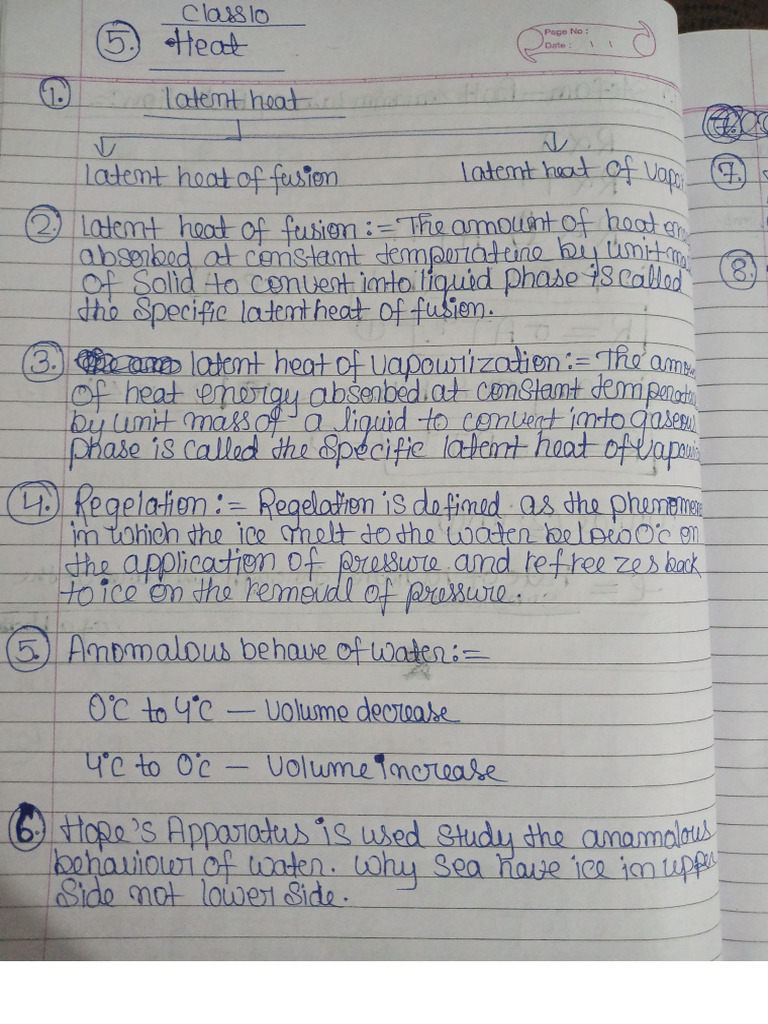 Class 10
5. Heat
Page No :
Date :
1. latent heat
latent heat of fusion latent heat of Vapo
2. latent heat of fusion := The amount of heat
absorbed at constant temperature by unit
of Solid to convent into liquid phase is called
the Specific latent heat of fusion.
3. latent heat of vapouriization := The amo
of heat energy absorbed at constant temperatu
by unit mass of a liquid to convent into gaseou
phase is called the Specific latent heat of Vapouri
4. Regelation := Regelation is defined as the phenomen
in which the ice melt to the water below 0°c on
the application of pressure and refreezes back
to ice on the removal of pressure.
5. Anomalous behave of water :=
0°C to 4°C — Volume decrease
4°C to 0°C — Volume increase
6. Hope's Apparatus is used study the anamalous
behaviour of water. Why Sea have ice in upper
Side not lower side.
7.
8.